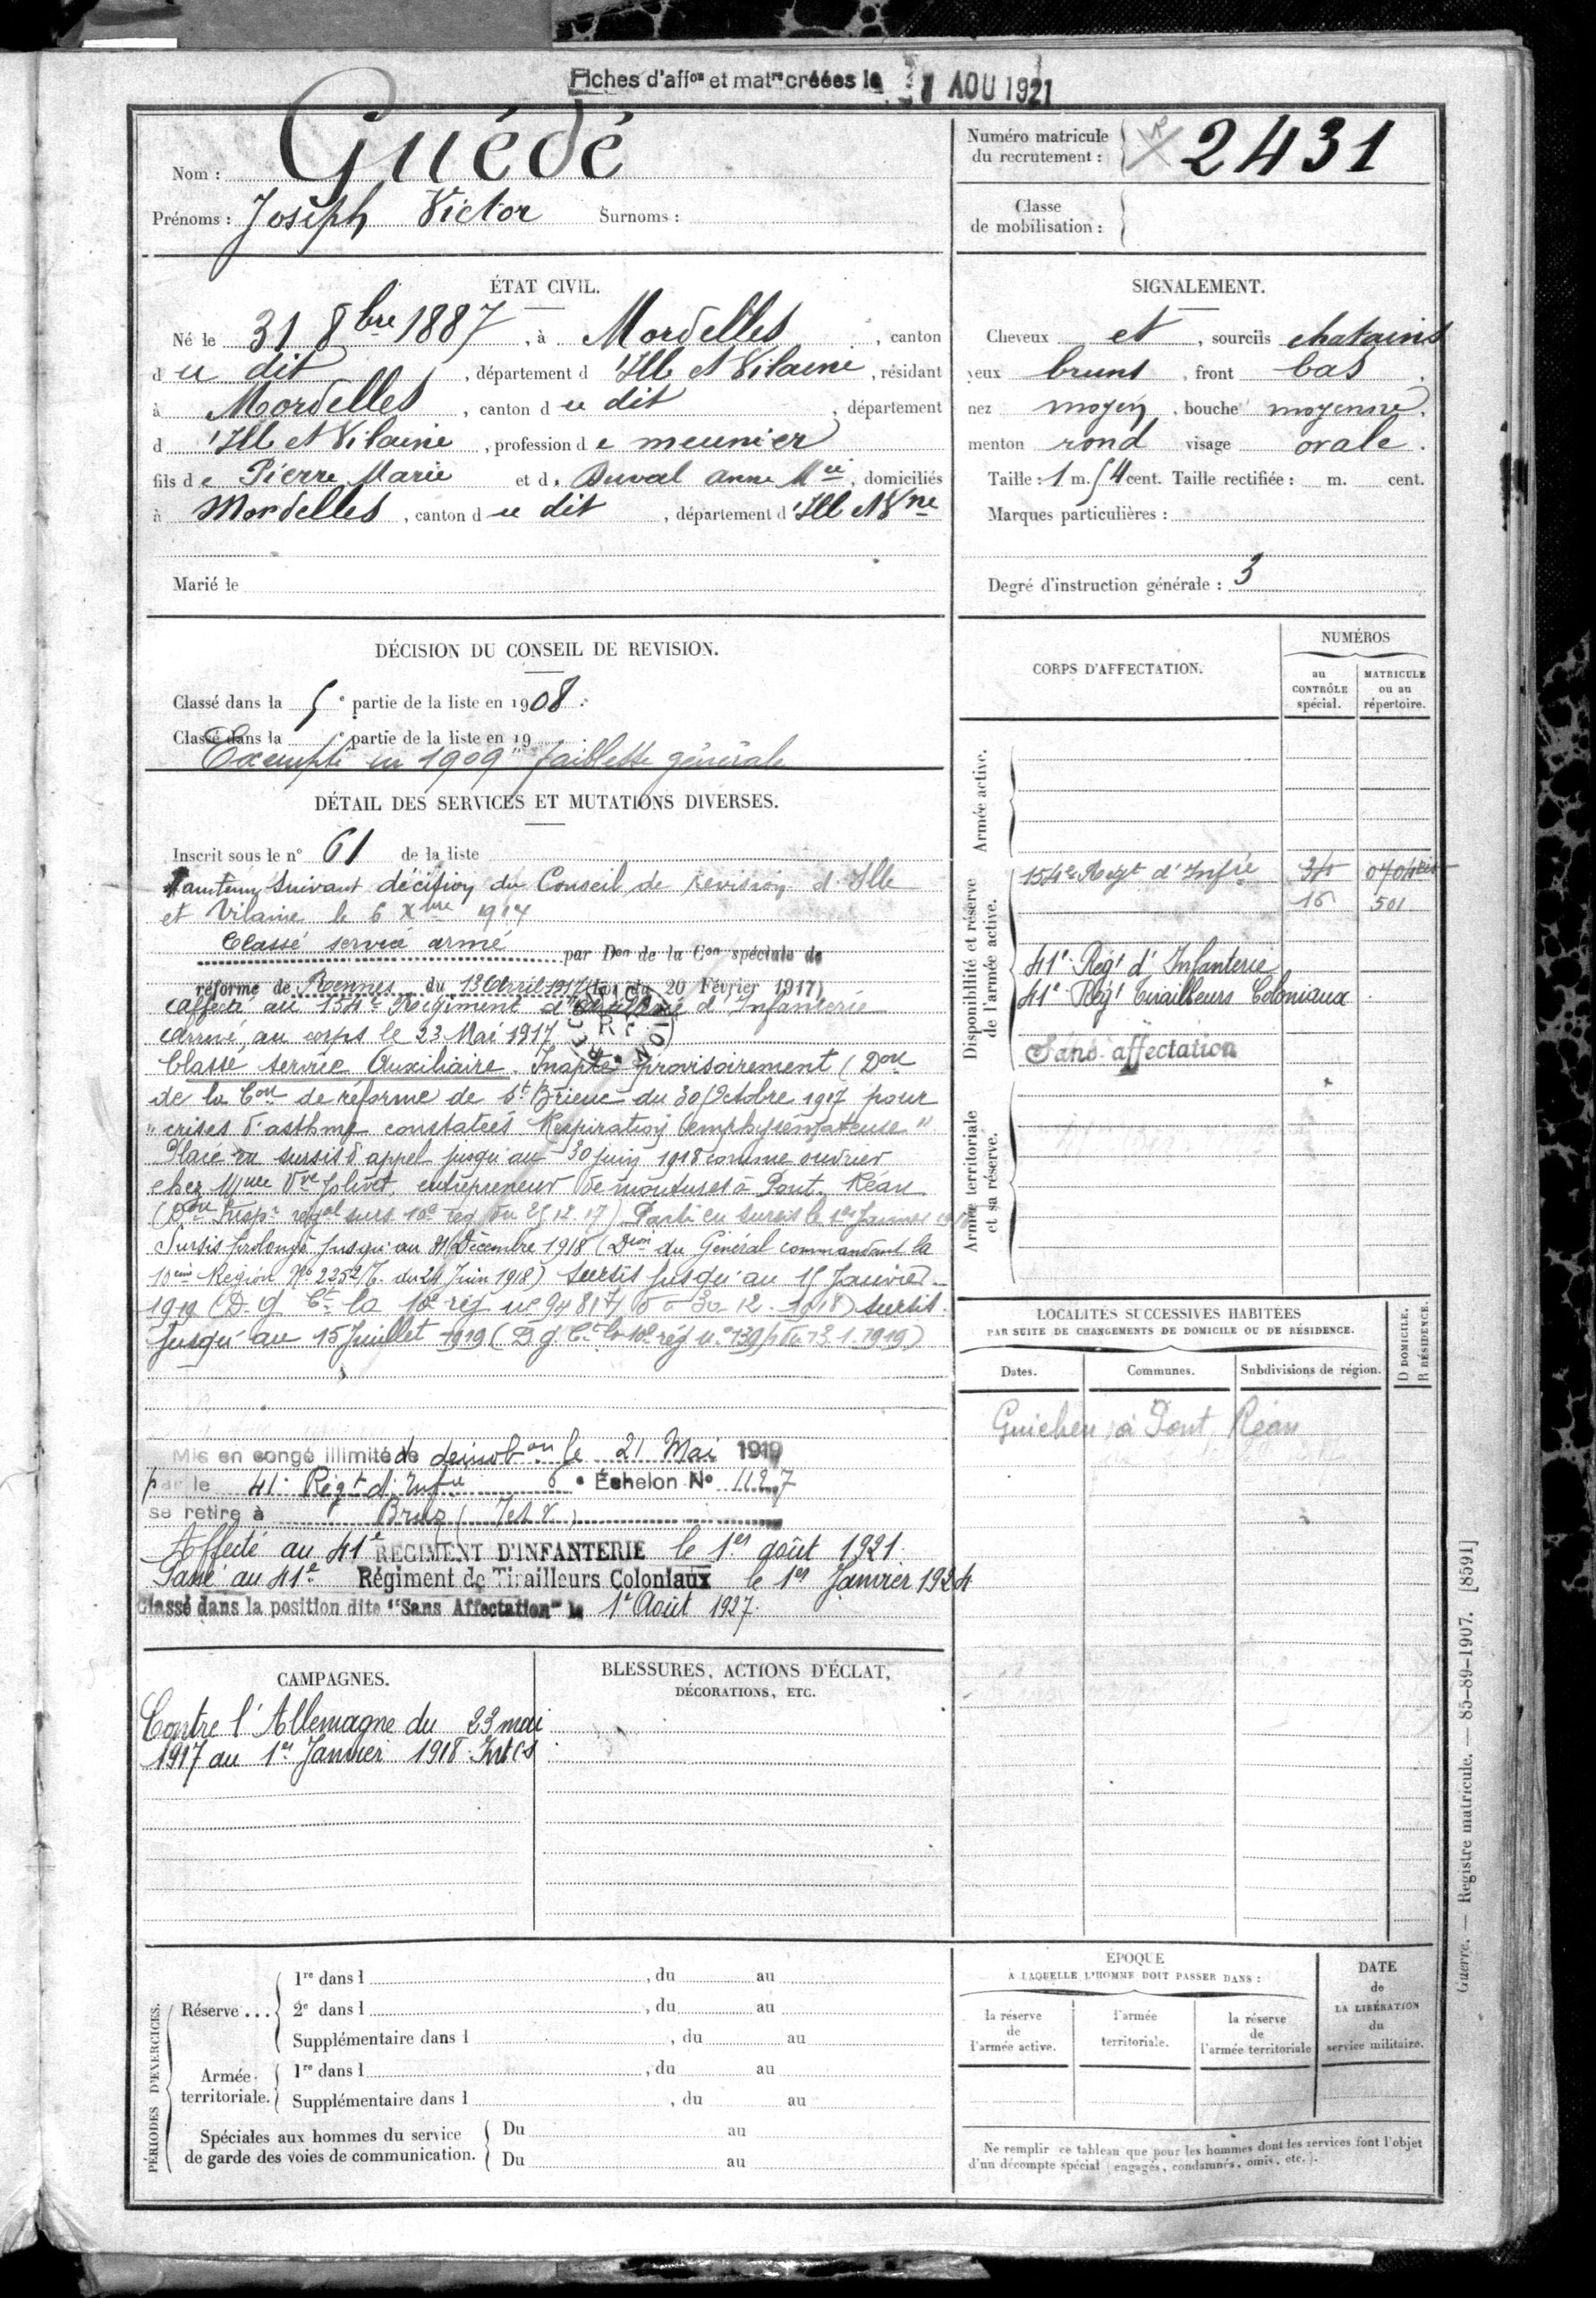 Fiches d'affon et matre créées le AOU 1921
Nom : Guédé
Prénoms : Joseph Victor Surnoms :
Numéro matricule du recrutement : 2431
Classe de mobilisation :
ÉTAT CIVIL.
Né le 31 8bre 1887, à Mordelles, canton
du dit, département d'Ille et Vilaine, résidant
à Mordelles, canton du dit, département
d'Ille et Vilaine, profession de meunier
fils de Pierre Marie et d. Duval Anne Mie, domiciliés
à Mordelles, canton du dit, département d'Ille et Vne
Marié le
SIGNALEMENT.
Cheveux et, sourcils chatains
yeux bruns, front bas
nez moyen, bouche moyenne,
menton rond visage ovale.
Taille : 1 m. 54 cent. Taille rectifiée : m. cent.
Marques particulières :
Degré d'instruction générale : 3
DÉCISION DU CONSEIL DE REVISION.
Classé dans la 5e partie de la liste en 1908.
Classé dans la e partie de la liste en 19
Exempté en 1909 "faiblesse générale
DÉTAIL DES SERVICES ET MUTATIONS DIVERSES.
Inscrit sous le n° 61 de la liste
Maintenu suivant décision du Conseil de revision d'Ille
et Vilaine le 6 Xbre 1914
Classé service armé par Don de la Con spéciale de
réforme de Rennes du 13 Avril 1917 (Loi du 20 Février 1917)
affecté au 154e Régiment d'Infanterie
Arrivé au corps le 23 Mai 1917
Classé service Auxiliaire. Inapte provisoirement (Don
de la Con de réforme de St Brieuc du 30 Octobre 1917 pour
"crises d'asthme constatées Respiration emphysémateuse"
Placé en sursis d'appel jusqu'au 30 juin 1918 comme ouvrier
chez Mme Vve Jolivet, entrepreneur de moutures à Pont-Réan
(Don Inspr regal surs 10e reg du 25.12.17) Parti en sursis le 1er Janvier 1918
Sursis prolongé jusqu'au 31 Décembre 1918 (Dion du Général commandant la
10ème Région No 2252/7 du 24 Juin 1918) Sursis jusqu'au 15 Janvier
1919 (D. G. Ct la 10e reg n° 9481 7/5 30-12-1918) sursis
jusqu'au 15 Juillet 1919 (D. G. Ct la 10e rég n° 139 du 13.1.1919)
Mis en congé illimité de démobon le 21 Mai 1919
par le 41e Régt d'Infie 6e Échelon No 1127
se retire à Bruz (I et V)
Affecté au 41e REGIMENT D'INFANTERIE le 1er août 1921.
Passé au 41e Régiment de Tirailleurs Coloniaux le 1er Janvier 1924
Classé dans la position dite "Sans Affectation" le 1er Août 1927.
CORPS D'AFFECTATION.
NUMÉROS
au CONTRÔLE spécial.
MATRICULE ou au répertoire.
Armée active.
Disponibilité et réserve de l'armée active.
154e Regt d'Infie
16 501
41e Régt d'Infanterie
41e Régt Tirailleurs Coloniaux
Sans affectation
Armée territoriale et sa réserve.
LOCALITÉS SUCCESSIVES HABITÉES
PAR SUITE DE CHANGEMENTS DE DOMICILE OU DE RÉSIDENCE.
Dates. Communes. Subdivisions de région. D DOMICILE. R RÉSIDENCE.
Guichen à Pont Réan
CAMPAGNES.
Contre l'Allemagne du 23 mai
1917 au 1er Janvier 1918
BLESSURES, ACTIONS D'ÉCLAT,
DÉCORATIONS, ETC.
PÉRIODES D'EXERCICES.
Réserve...
1re dans l , du au
2e dans l , du au
Supplémentaire dans l , du au
Armée territoriale.
1re dans l , du au
Supplémentaire dans l , du au
Spéciales aux hommes du service
de garde des voies de communication.
Du au
Du au
ÉPOQUE
À LAQUELLE L'HOMME DOIT PASSER DANS :
la réserve de l'armée active.
l'armée territoriale.
la réserve de l'armée territoriale
DATE de LA LIBÉRATION du service militaire.
Ne remplir ce tableau que pour les hommes dont les services font l'objet
d'un décompte spécial (engagés, condamnés, omis, etc.).
Guerre. — Registre matricule. — 85-89-1907. [8591]